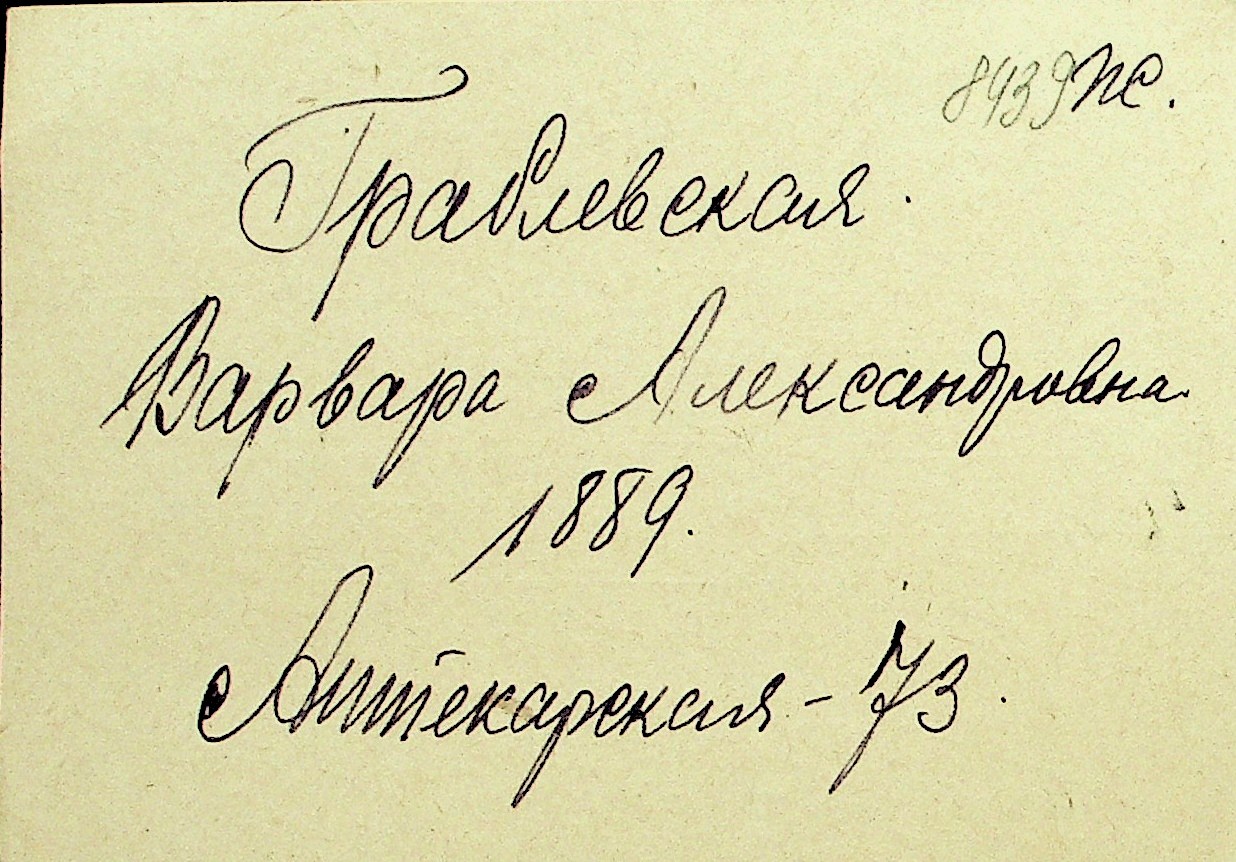 8439 ПС.
Граблевская.
Варвара Александровна.
1889.
Аптекарская - 73.